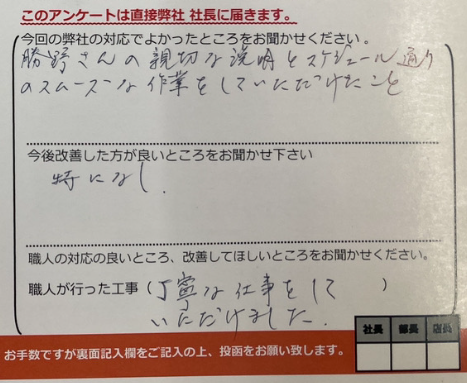 このアンケートは直接弊社 社長に届きます。
今回の弊社の対応でよかったところをお聞かせください。
勝野さんの親切な説明とスケジュール通り
のスムーズな作業をしていただけたこと
今後改善した方が良いところをお聞かせ下さい
特になし.
職人の対応の良いところ、改善してほしいところをお聞かせください。
職人が行った工事(丁寧な仕事をして)
いただけました.
社長 部長 店長
お手数ですが裏面記入欄をご記入の上、投函をお願い致します。